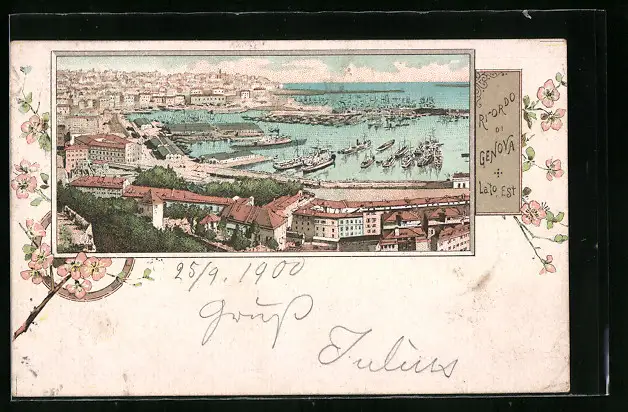 RICORDO
DI
GENOVA
Lato Est
25/9. 1900
Gruß
Julius